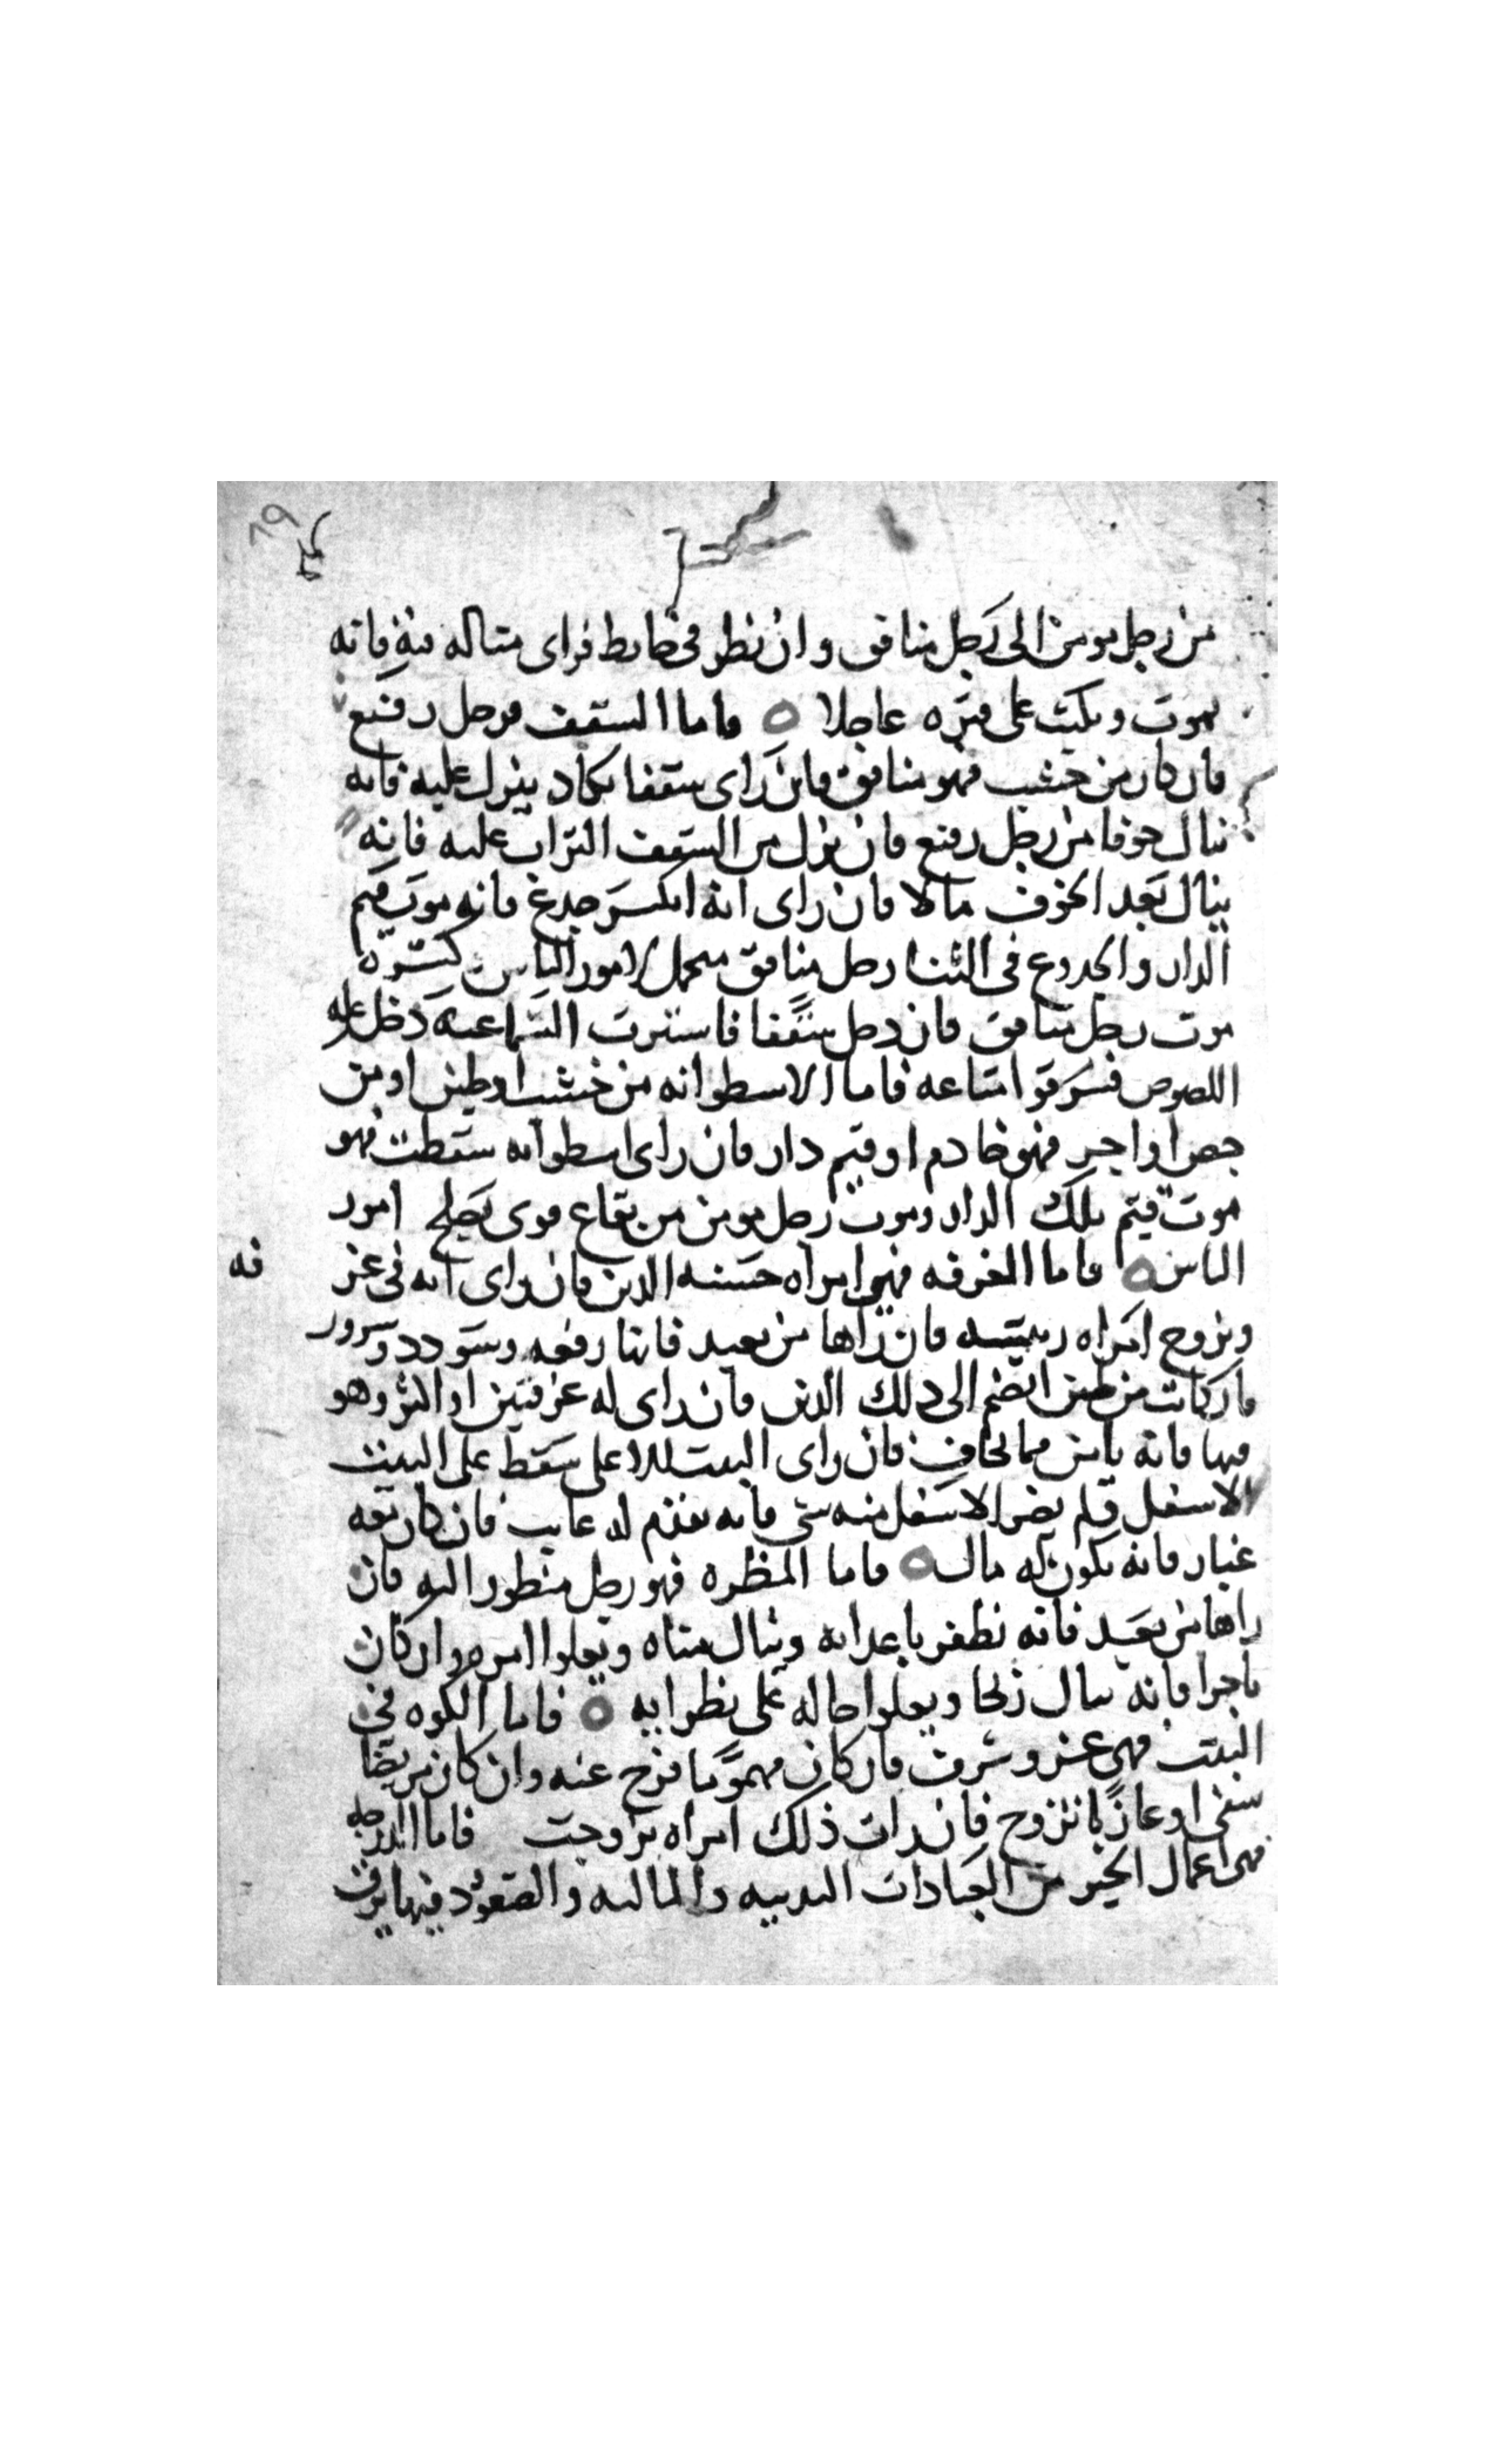 من رجل مومن الى رجل منافق وان نظر في حايط فراى مثاله فيه فانه
يموت ويكتب على قبره عاجلا ه واما السقف فرجل رفيع
فان كان من خشب فهو منافق فان راى سقفا يكاد ينزل عليه فانه
ينال خوفا من رجل رفيع فان نزل من السقف التراب عليه فانه
ينال بعد الخوف مالا فان راى انه انكسر جدع فانه موت قيم
الدار والجدوع في البنا رجل منافق متحمل لامور الناس كسره
موت رجل منافق فان دخل سقفا فاستترت السما عنه دخل عليه
اللصوص فسرقوا متاعه فاما الاسطوانه من خشب او طين او من
جص او اجر فهو خادم او قيم دار فان راى اسطوانه سقطت فهو
موت قيم تلك الدار وموت رجل مومن من بقاع قوى يصلح امور
الناس ه واما الغرفه فهي امراه حسنه الدين فان راى انه في غر
فه
وتزوج امراه رييسه فان راها من بعيد فانها رفعه وسودد وسرور
فان كانت من طين انضم الى ذلك الدين فان راى له غرفتين او اكثر وهو
فيها فانه يامن مما يخاف فان راى البيت الاعلى سقط على البيت
الاسفل فلم يضر الاسفل منه شي فانه يقدم له غايب فان كان معه
غبار فانه يكون له مال ه فاما المنظره فهو رجل منظور اليه فان
راها من بعيد فانه يظفر باعدايه وينال مناه ويعلوا امره وان كان
تاجرا فانه ينال ربحا ويعلوا حاله على نظرايه ه فاما الكوه في
البيت فهي عز وشرف فان كان مهموما فرج عنه وان كان مريضا
شفى او عازبا تزوج فان رات ذلك امراه تزوجت فاما الدرجه
فهي اعمال الخير من العبادات البدنيه والماليه والصعود فيها يرف